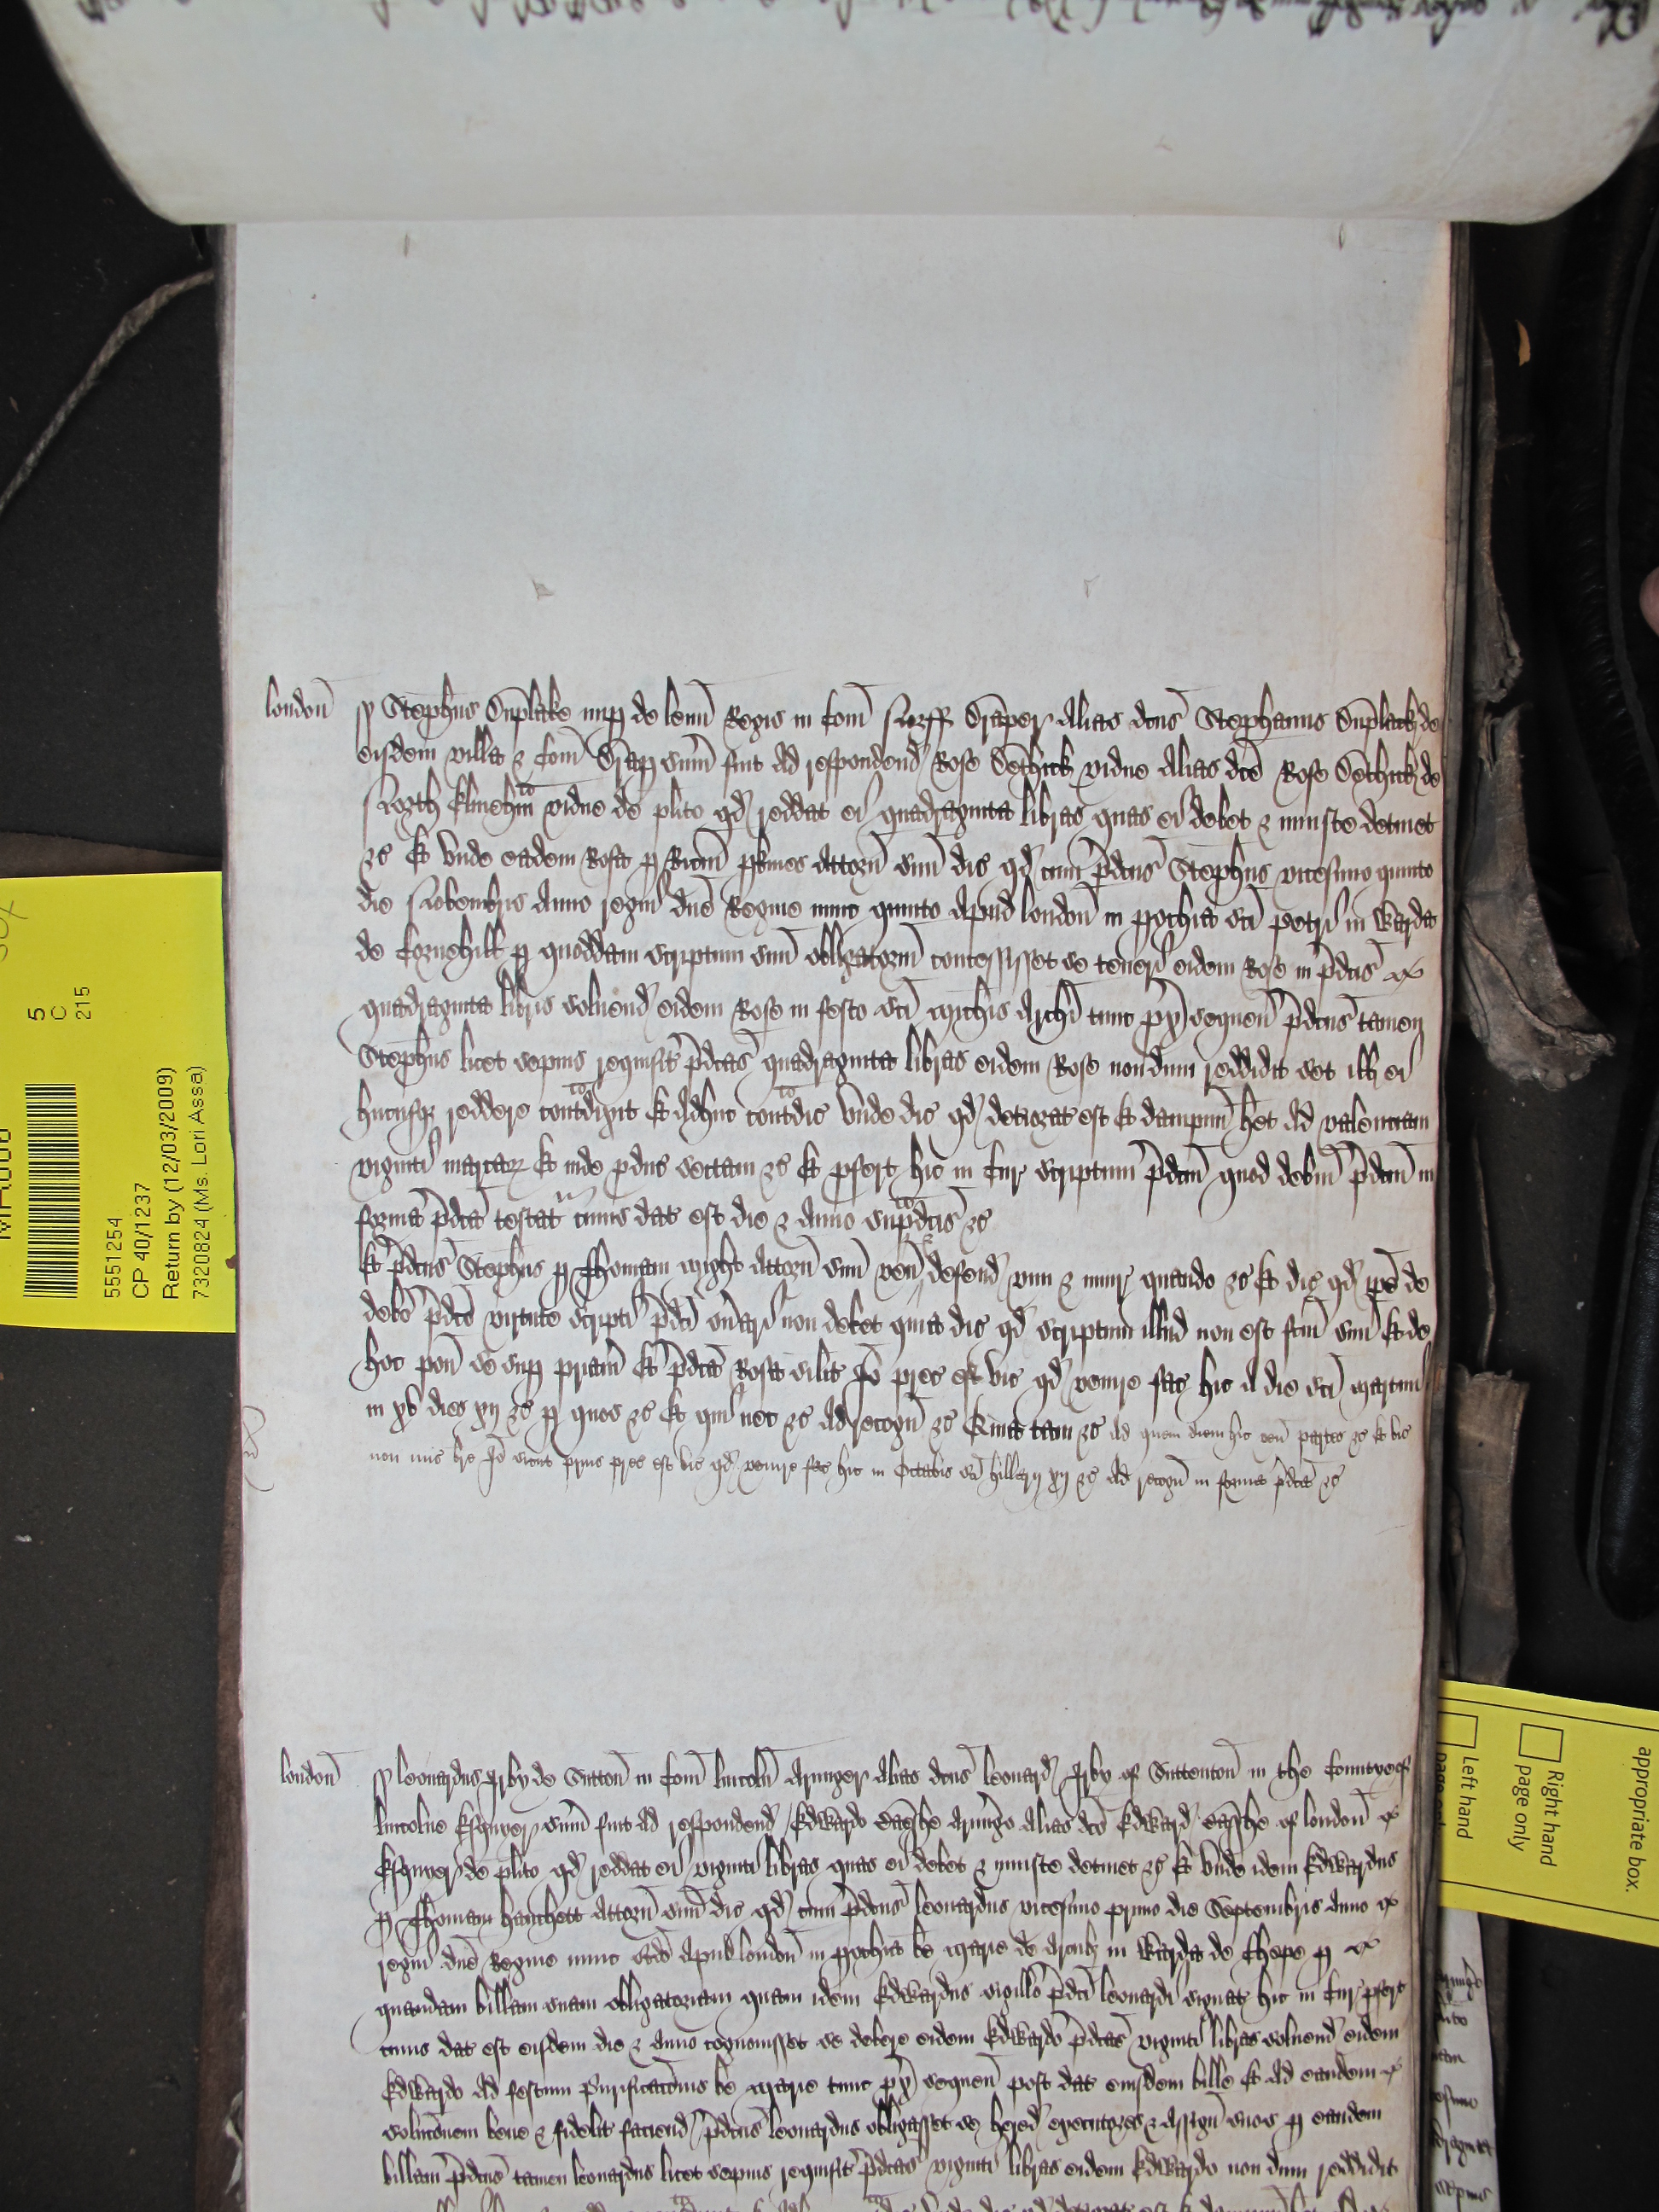 london̄ ss Stephus Suplake nup de lenn̄ Regis in Com̄ Norff Draper Alias dcus Stephanus Suplack de
eisdem villa & Com̄ Drap sum̄ fuit ad respondend Rose vidue Alias dce Rose de
North Elmehm̄ vidue de plito qd reddat ei quadraginta libras quas ei debet & iniuste detinet
&c Et unde eadem Rosa p Ricm̄ Attorn̄ suu dic qd cum p̄dcus Stephus vicesimo quinto
die Novembris Anno regni dn̄e Regine nunc quinto apud london̄ in pochia sci petri in Warda
de Cornehill p quoddam scriptum suu obligatoriu concessisset se teneri eidem Rose in p̄dcis
quadraginta libris solvend eidem Rose in festo sci Michis Archi tunc px̄ sequen̄ p̄dcus tamen
Stephus licet sepius requisit p̄dcas quadraginta libras eidem Rose nondum reddidit set ill ei
hucusq reddere contdixit Et adhuc contdic Unde dic qd deteriorat est Et dampnu het ad valenciam
viginti marcar Et inde pduc sectam &c Et pfert hic in Cur scriptum p̄dcm quod debitu p̄dcm in
forma p̄dca testat cuius dat est die & Anno sup̄dcis &c
Et p̄dcus Stephus p Thomam Attorn̄ suu ven̄ & defend vim & iniur quando &c Et dic qd ip̄e de
debo p̄dco virtute scripti p̄dci on̄ari non debet quia dic qd scriptum illud non est fcm̄ suu Et de
hoc pon̄ se sup priam̄ Et p̄dca Rosa silit Jo prec est vic qd venire fac hic a die sci Martini
in xv dies xij &c p quos &c Et qui nec &c ad recogn̄ &c Quia tam &c Ad quem diem hic ven̄ partes &c Et vic
non mis bre Jo sicut prius prec est vic qd venire fac hic in Octabis sci hillarij xij &c ad recogn̄ in forma p̄dca &c
london̄ ss leonardus Irby de Sutton in Com̄ lincoln̄ Armiger Alias dcus leonard Irby of Suttenton in the Countye of
lincolne Esquyer sum̄ fuit ad respondend Edwardo armigo alias dco Edward of london̄
Esquyer de plito qd reddat ei viginti libras quas ei debet & iniuste detinet &c Et unde idem Edwardus
p Thomam hanchett Attorn̄ suu dic qd cum p̄dcus leonardus vicesimo primo die Septembris anno
regni dn̄e Regine nunc apud london̄ in pochia be Marie de Arcub in Warda de Chepe p
quandam billam suam obligatoriam quam idem Edwardus sigillo p̄dci leonardi signat hic in Cur pfert
cuius dat est eisdem die & anno cognovisset se debere eidem Edwardo p̄dcas viginti libras solvend eidem
Edwardo ad festum Purificac̄onis be Marie tunc px̄ sequen̄ post dat eiusdem bille Et ad eandem
soluc̄onem bene & fidelit faciend p̄dcus leonardus obligasset se hered executores & Assign̄ suos p eandem
billam p̄dcus tamen leonardus licet sepius requisit p̄dcas viginti libras eidem Edwardo non dum reddidit
5
C
215
5551254
CP 40/1237
Return by (12/03/2009)
7320824 (Ms. Lori Assa)
appropriate box.
Right hand
page only
Left hand